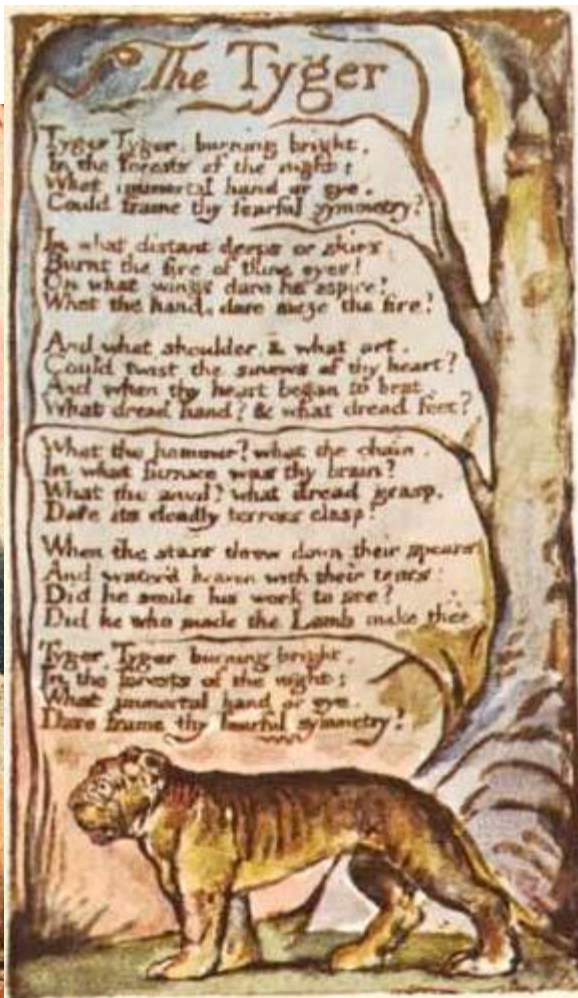 The Tyger
Tyger Tyger, burning bright,
In the forests of the night;
What immortal hand or eye,
Could frame thy fearful symmetry?
In what distant deeps or skies
Burnt the fire of thine eyes?
On what wings dare he aspire?
What the hand, dare sieze the fire?
And what shoulder, & what art,
Could twist the sinews of thy heart?
And when thy heart began to beat,
What dread hand? & what dread feet?
What the hammer? what the chain,
In what furnace was thy brain?
What the anvil? what dread grasp,
Dare its deadly terrors clasp?
When the stars threw down their spears
And water'd heaven with their tears:
Did he smile his work to see?
Did he who made the Lamb make thee
Tyger, Tyger burning bright,
In the forests of the night:
What immortal hand or eye,
Dare frame thy fearful symmetry?